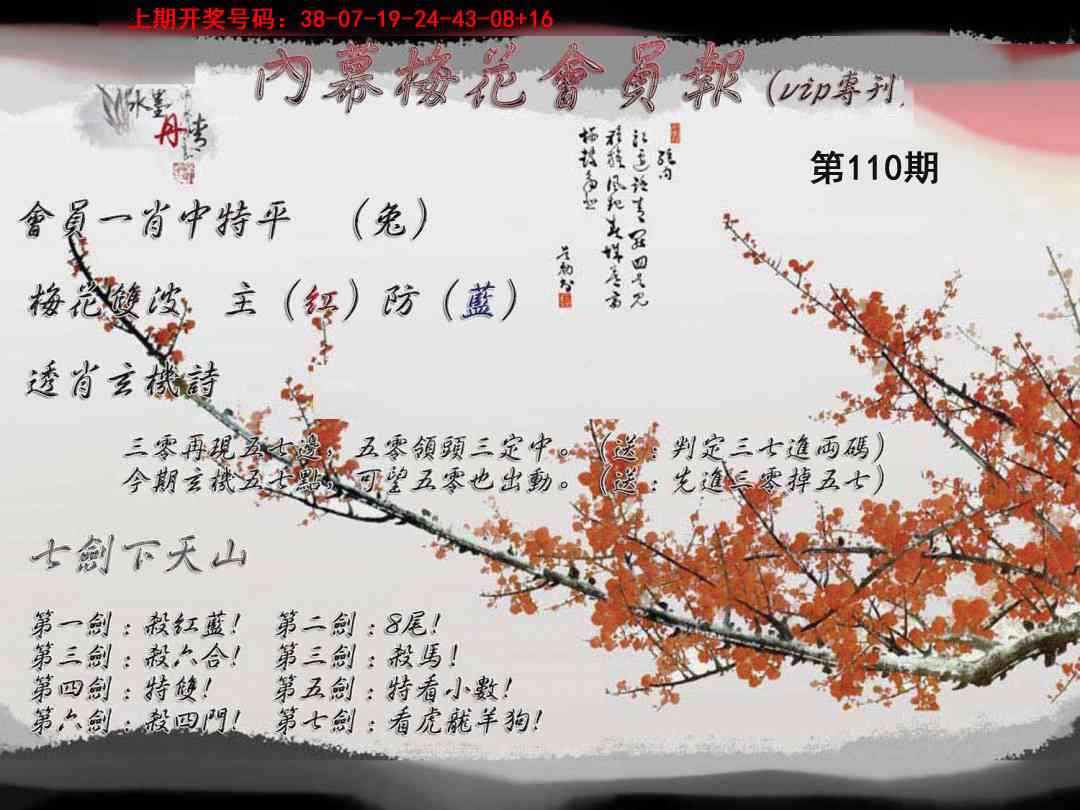 上期开奖号码：38-07-19-24-43-08+16
內幕梅花會員報（vip專刊）
水墨
丹青
第110期
會員一肖中特平　（兔）
梅花雙波　主（紅）防（藍）
透肖玄機詩
三零再現五七邊，五零領頭三定中。（送：判定三七進兩碼）
今期玄機五七點，可望五零也出動。（送：先進三零掉五七）
七劍下天山
第一劍：殺紅藍！　第二劍：8尾！
第三劍：殺六合！　第三劍：殺馬！
第四劍：特雙！　第五劍：特看小數！
第六劍：殺四門！　第七劍：看虎龍羊狗！